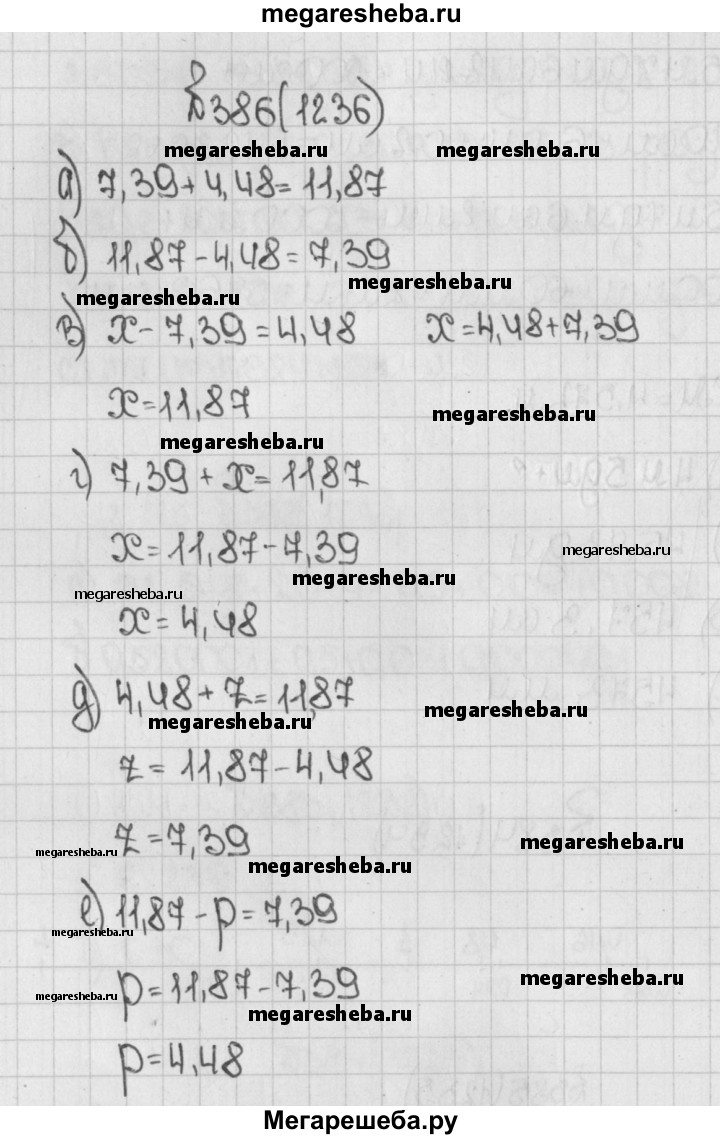 megaresheba.ru
№386(1236)
megaresheba.ru megaresheba.ru
а) 7,39+4,48=11,87
б) 11,87-4,48=7,39
megaresheba.ru megaresheba.ru
в) x-7,39=4,48 x=4,48+7,39
x=11,87
megaresheba.ru megaresheba.ru
г) 7,39+x=11,87
x=11,87-7,39
megaresheba.ru megaresheba.ru megaresheba.ru
x=4,48
д) 4,48+z=11,87
megaresheba.ru megaresheba.ru
z=11,87-4,48
z=7,39
megaresheba.ru megaresheba.ru megaresheba.ru
е) 11,87-p=7,39
megaresheba.ru
p=11,87-7,39
megaresheba.ru megaresheba.ru megaresheba.ru
p=4,48
Мегарешеба.ру